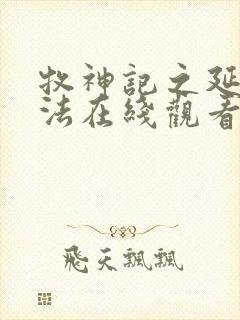 牧神記之延
法在綫觀看
飛天飄飄